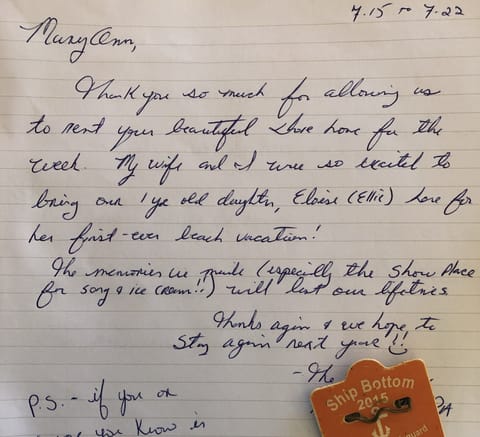 7.15 to 7.22
MaryAnn,
Thank you so much for allowing us
to rent your beautiful shore home for the
week. My wife and I were so excited to
bring our 1 yr old daughter, Eloise (Ellie) here for
her first-ever beach vacation!
The memories we made (especially the Show Place
for song & ice cream!!) will last our lifetimes
Thanks again & we hope to
stay again next year!!
- The
P.S. - if you or
you know is
PA
Ship Bottom
2015